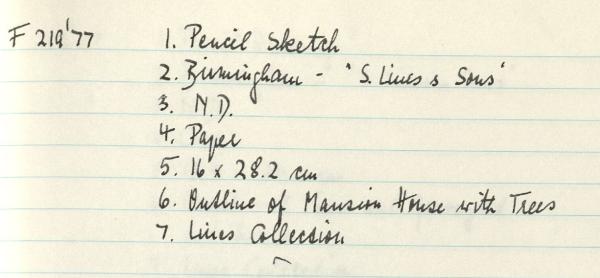 F 219'77 1. Pencil Sketch
2. Birmingham - "S. Lines & Sons"
3. N.D.
4. Paper
5. 16 x 28.2 cm
6. Outline of Mansion House with Trees
7. Lines Collection